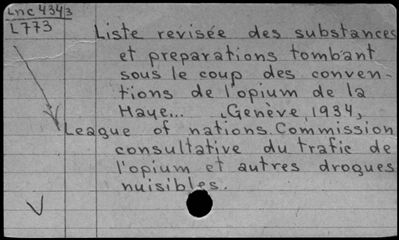 Lnc 4343
L773
Liste revisée des substances
et preparations tombant
sous le coup des conven-
tions de l'opium de la
Haye... Genève, 1934,
League of nations. Commission
consultative du trafic de
l'opium et autres drogues
nuisibles.